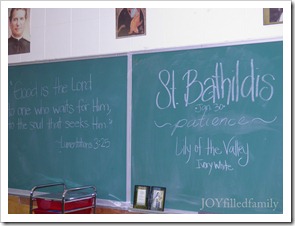 "Good is the Lord
to one who waits for Him,
to the soul that seeks Him."
Lamentations 3:25
St. Bathildis
Jan. 30
~patience~
Lily of the Valley
Ivory White
JOYfilledfamily